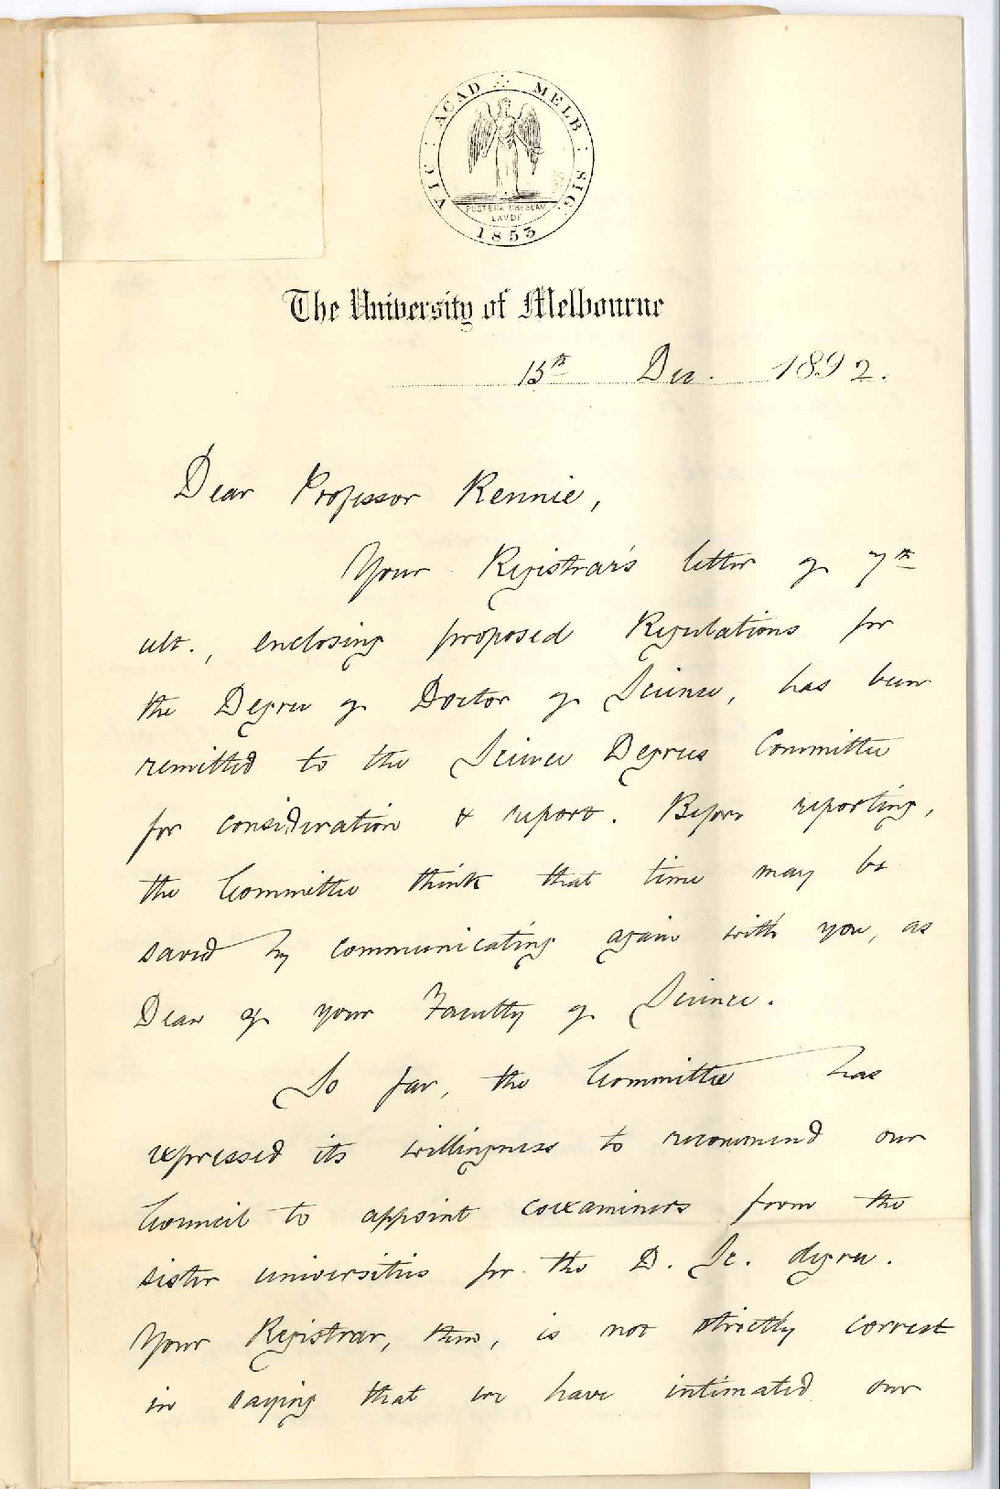 VIC : ACAD ∴ MELB : SIG.
POSTERA CRESCAM
LAVDE
1853
The University of Melbourne
15th Dec. 1892.
Dear Professor Rennie,
Your Registrar's letter of 7th
ult., enclosing proposed Regulations for
the Degree of Doctor of Science, has been
remitted to the Science Degrees Committee
for consideration & report. Before reporting,
the Committee think that time may be
saved by communicating again with you, as
Dean of your Faculty of Science.
So far, the Committee has
expressed its willingness to recommend our
Council to appoint coexaminers from the
sister universities for the D. Sc. degree.
Your Registrar, then, is not strictly correct
in saying that we have intimated our